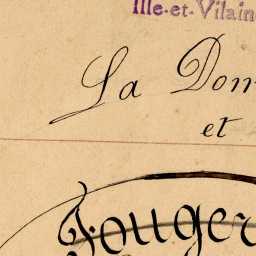 Ille-et-Vilain
La Dom
et
Fouger